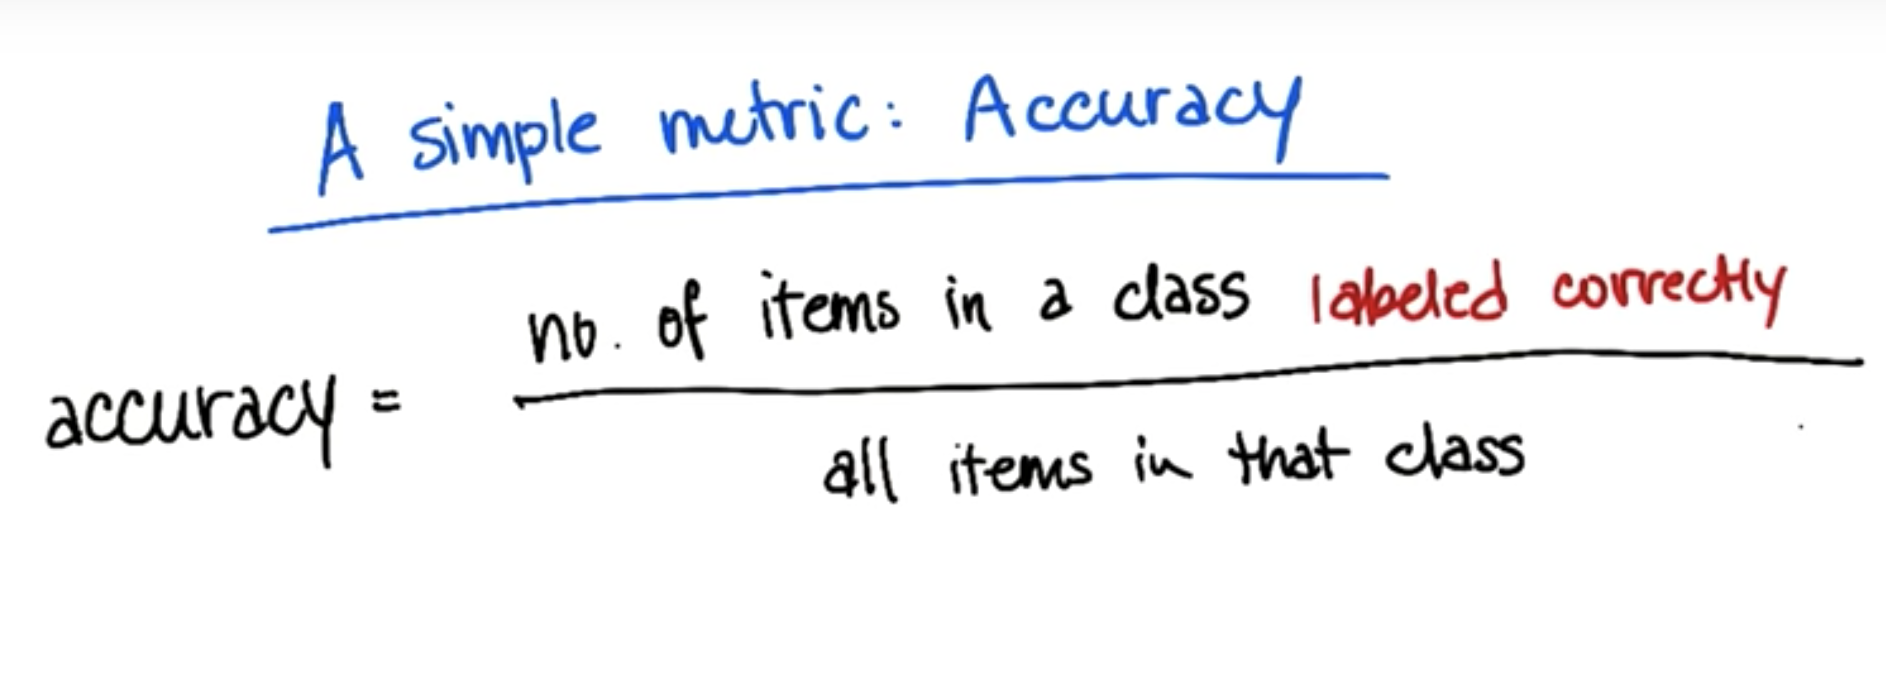 A simple metric: Accuracy
no. of items in a class labeled correctly
accuracy =
all items in that class